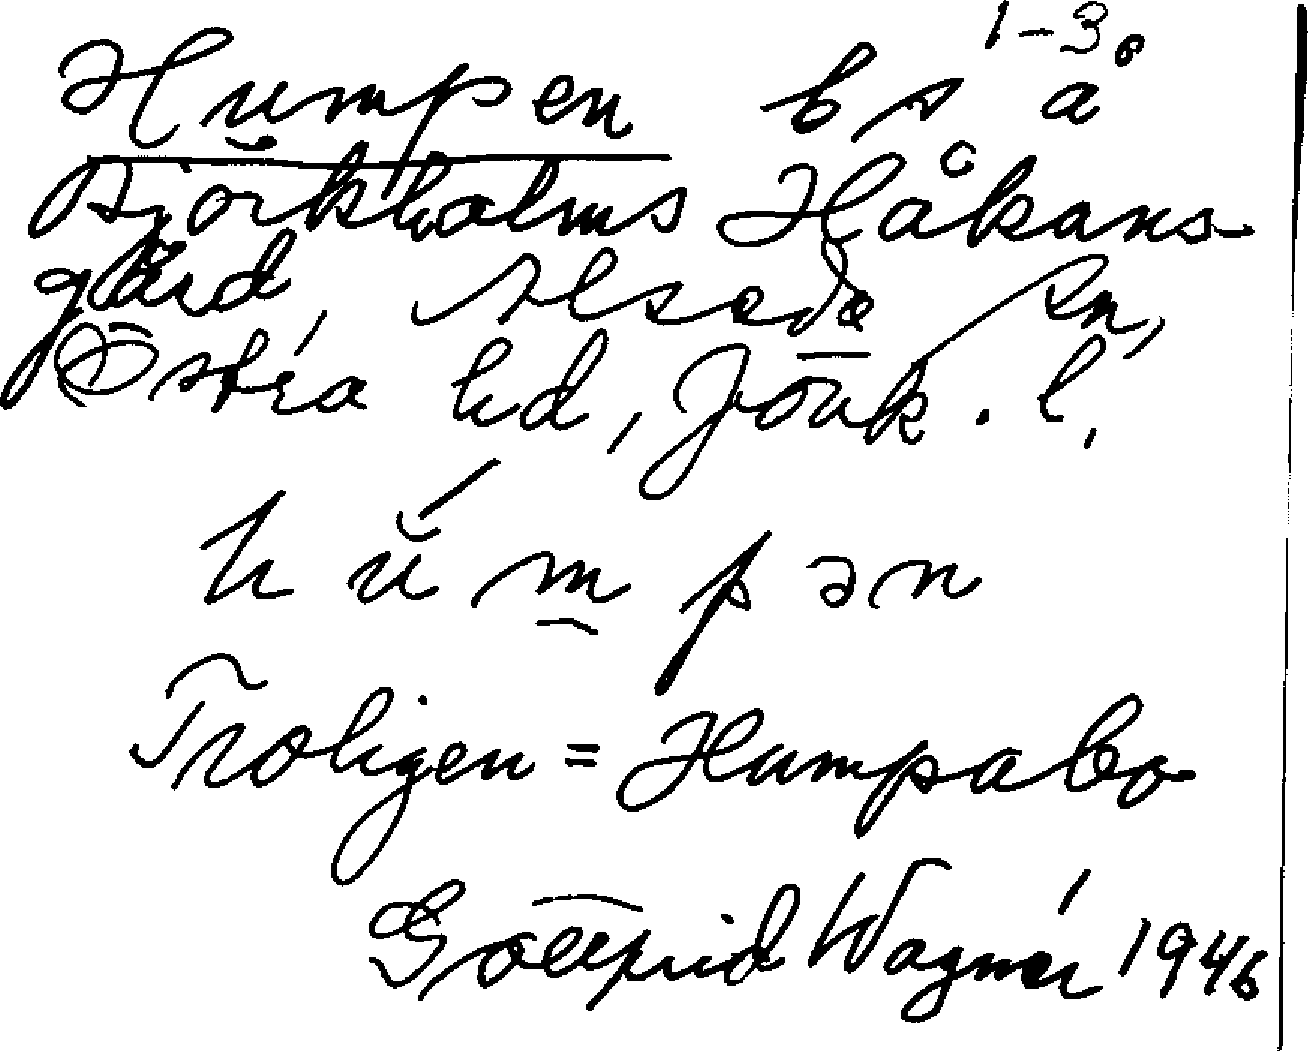 1-3
Humpen bs å
Björkholms Håkans-
gård, Alseda sn,
Östra hd, Jönk. l.
hŭ́mpən
Troligen = Humpabo
Gottfrid Wagnér 1946